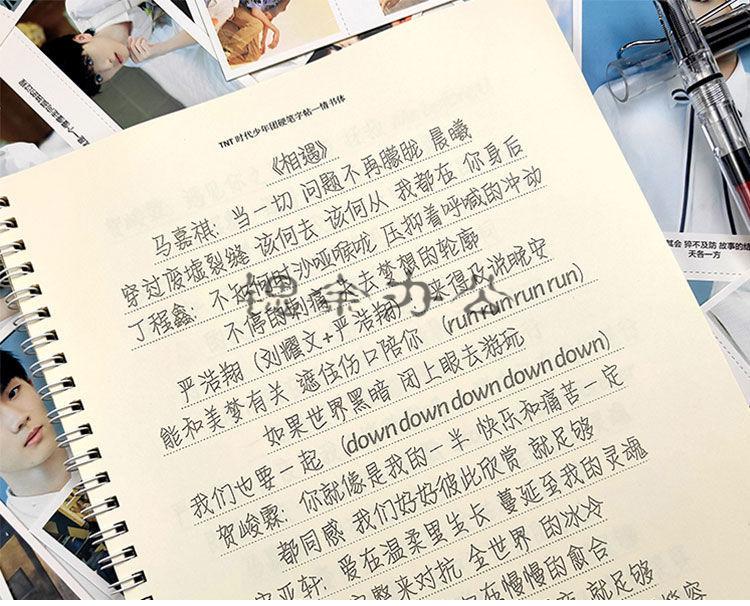 TNT 时代少年团硬笔字帖—情书体
《相遇》
马嘉祺：当一切 问题不再朦胧 晨曦
穿过废墟裂缝 该何去 该何从 我都在 你身后
丁程鑫：不知何时沙哑喉咙 压抑着呼喊的冲动
不停的刺痛 失去梦想的轮廓
严浩翔（刘耀文+严浩翔）来得及说晚安
能和美梦有关 遮住伤口陪你 （run run run run）
如果世界黑暗 闭上眼去游玩
我们也要一起 （down down down down down）
贺峻霖：你就像是我的一半 快乐和痛苦一定
都同感 我们好好彼此欣赏 就足够
亚轩：爱在温柔里生长 蔓延至我的灵魂
来对抗 全世界 的冰冷
在慢慢的愈合
就足够
锶伞办公
甚会 猝不及防 故事的结
天各一方